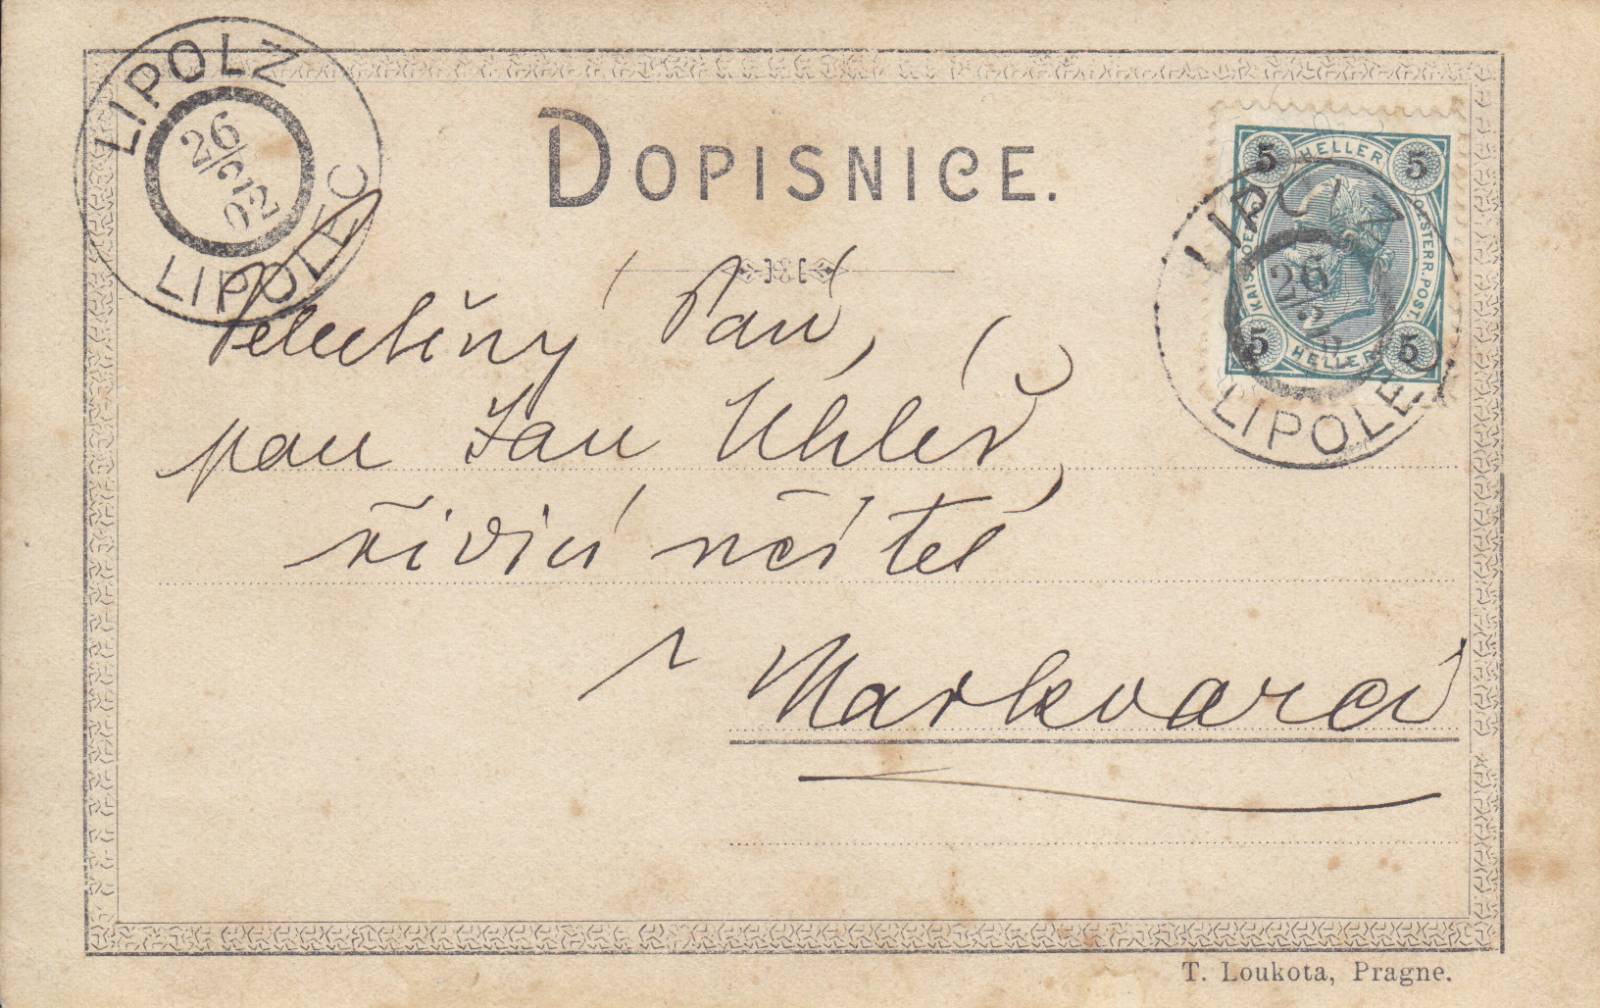 LIPOLZ
26/2 02
LIPOLEC
DOPISNICE.
5 HELLER 5
KAIS. OESTERR. POST.
5 HELLER 5
LIPOLZ
26/2
LIPOLEC
Velectěný Pan,
pan Jan Uhlíř,
řídící učitel
v Markvarci
T. Loukota, Pragne.